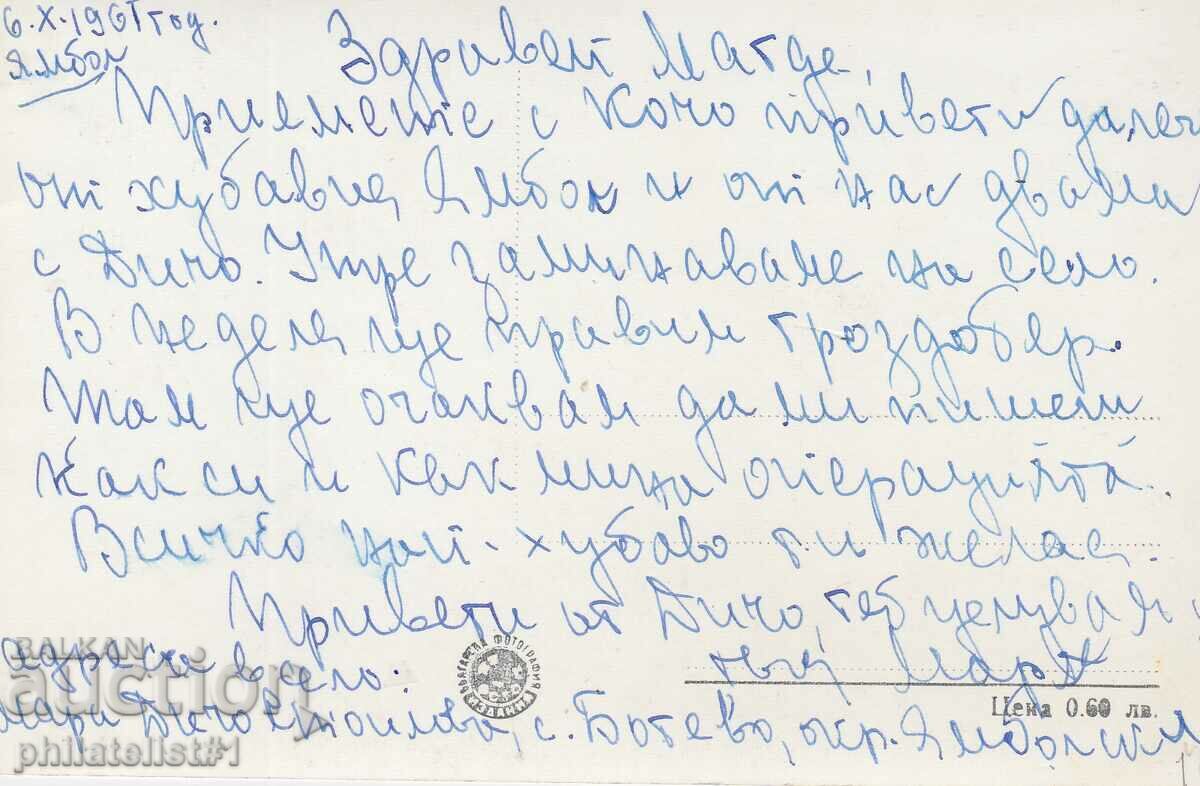 6.X.1961 год.
Ямбол
Здравей Магде,
Приемете с Кочо привети далеч
от хубавия Ямбол и от нас двама
с Дичо. Утре заминаваме на село.
В неделя ще правим гроздобер.
Там ще очаквам да ми пишеш
Как си и как мина операцията.
Всичко най-хубаво ти желая.
Привети от Дичо, теб целувам
адреса в село:
Мари Дичо, с. Ботево, окр. Ямболски
БЪЛГАРСКА ФОТОГРАФИЯ
ИЗДАНИЕ
Цена 0.60 лв.
BALKAN
auction
philatelist#1